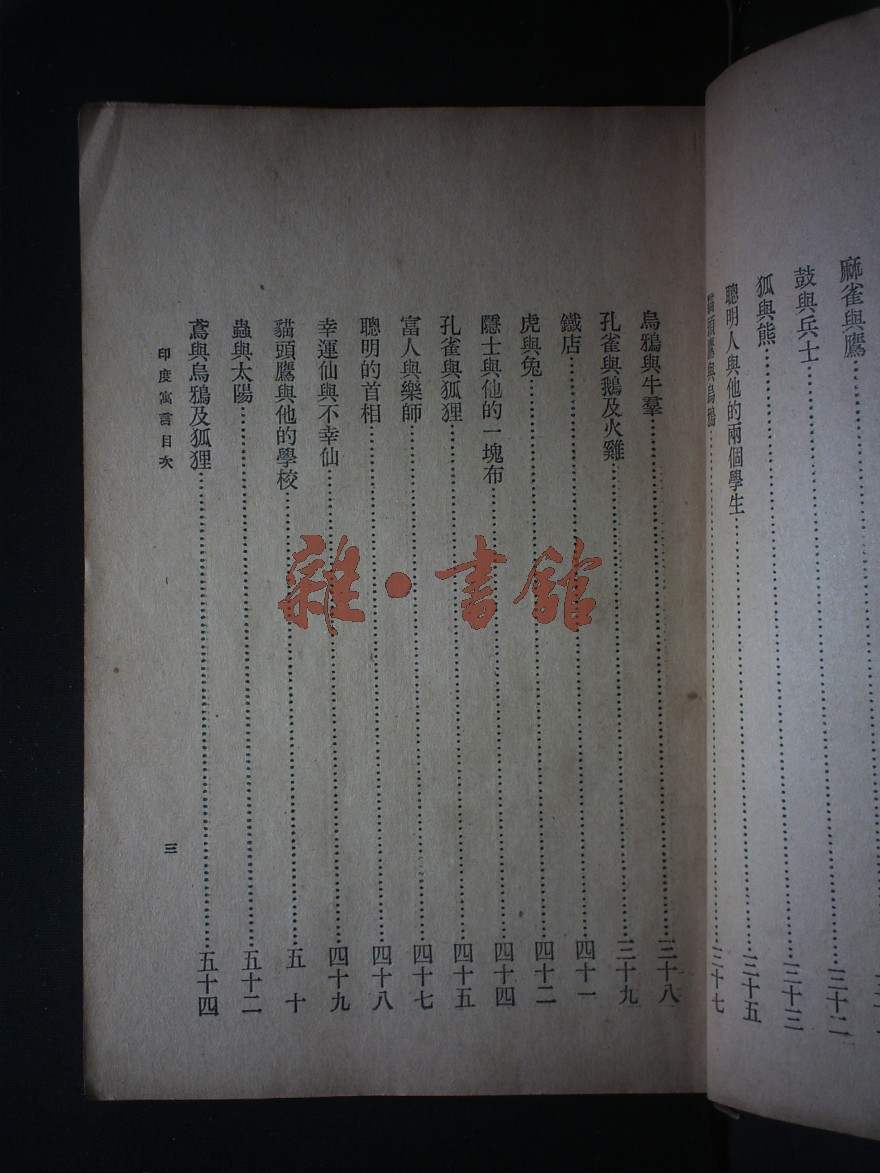 麻雀與鷹
鼓與兵士……三十二
狐與熊……三十三
聰明人與他的兩個學生……三十五
貓頭鷹與烏鴉……三十七
烏鴉與牛羣……三十八
孔雀與鵝及火雞……三十九
鐵店……四十一
虎與兔……四十二
隱士與他的一塊布……四十四
孔雀與狐狸……四十五
富人與樂師……四十七
聰明的首相……四十八
幸運仙與不幸仙……四十九
貓頭鷹與他的學校……五十
蟲與太陽……五十二
鳶與烏鴉及狐狸……五十四
印度寓言目次
三
雜·書館